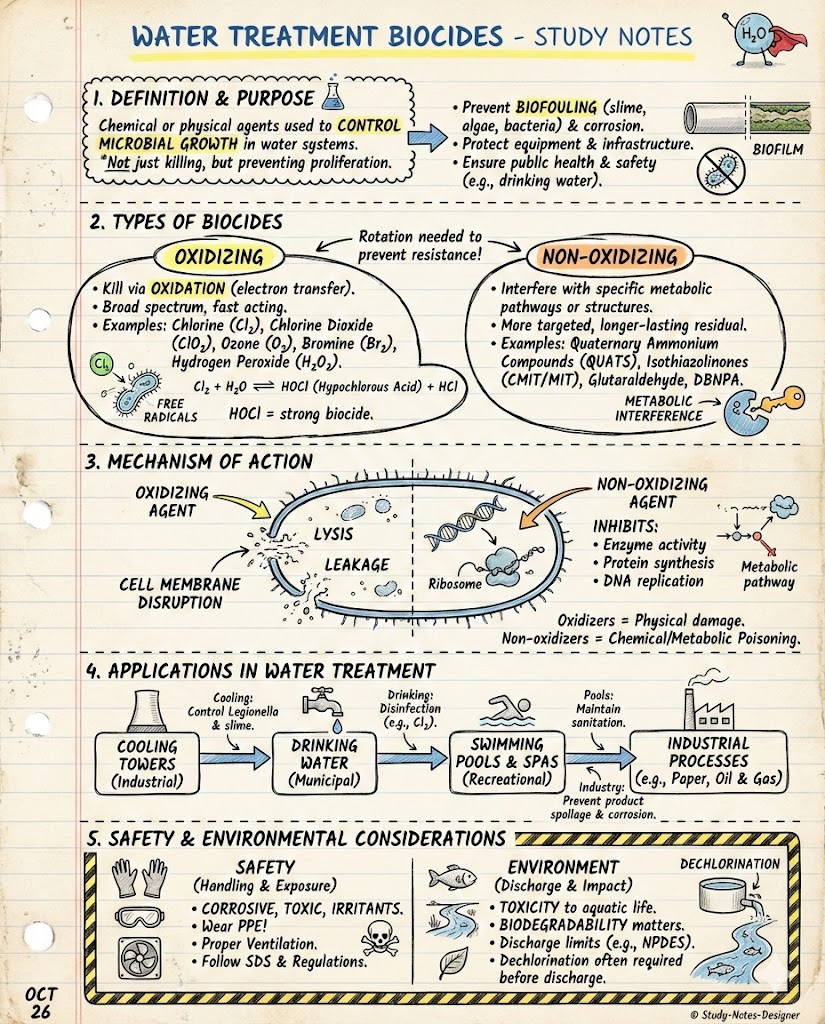 WATER TREATMENT BIOCIDES - STUDY NOTES
H₂O
1. DEFINITION & PURPOSE
Chemical or physical agents used to CONTROL
MICROBIAL GROWTH in water systems.
*Not just killing, but preventing proliferation.
• Prevent BIOFOULING (slime,
algae, bacteria) & corrosion.
• Protect equipment & infrastructure.
• Ensure public health & safety
(e.g., drinking water).
BIOFILM
2. TYPES OF BIOCIDES
OXIDIZING
Rotation needed to
prevent resistance!
NON-OXIDIZING
• Kill via OXIDATION (electron transfer).
• Broad spectrum, fast acting.
• Examples: Chlorine (Cl₂), Chlorine Dioxide
(ClO₂), Ozone (O₃), Bromine (Br₂),
Hydrogen Peroxide (H₂O₂).
Cl₂
FREE
RADICALS
Cl₂ + H₂O ⇌ HOCl (Hypochlorous Acid) + HCl
HOCl = strong biocide.
• Interfere with specific metabolic
pathways or structures.
• More targeted, longer-lasting residual.
• Examples: Quaternary Ammonium
Compounds (QUATS), Isothiazolinones
(CMIT/MIT), Glutaraldehyde, DBNPA.
METABOLIC
INTERFERENCE
3. MECHANISM OF ACTION
OXIDIZING
AGENT
CELL MEMBRANE
DISRUPTION
LYSIS
LEAKAGE
Ribosome
NON-OXIDIZING
AGENT
INHIBITS:
• Enzyme activity
• Protein synthesis
• DNA replication
Metabolic
pathway
Oxidizers = Physical damage.
Non-oxidizers = Chemical/Metabolic Poisoning.
4. APPLICATIONS IN WATER TREATMENT
COOLING
TOWERS
(Industrial)
Cooling:
Control Legionella
& slime.
DRINKING
WATER
(Municipal)
Drinking:
Disinfection
(e.g., Cl₂).
SWIMMING
POOLS & SPAS
(Recreational)
Pools:
Maintain
sanitation.
Industry:
Prevent product
spollage & corrosion.
INDUSTRIAL
PROCESSES
(e.g., Paper, Oil & Gas)
5. SAFETY & ENVIRONMENTAL CONSIDERATIONS
SAFETY
(Handling & Exposure)
• CORROSIVE, TOXIC, IRRITANTS.
• Wear PPE!
• Proper Ventilation.
• Follow SDS & Regulations.
ENVIRONMENT
(Discharge & Impact)
• TOXICITY to aquatic life.
• BIODEGRADABILITY matters.
• Discharge limits (e.g., NPDES).
• Dechlorination often required
before discharge.
DECHLORINATION
OCT
26
© Study-Notes-Designer